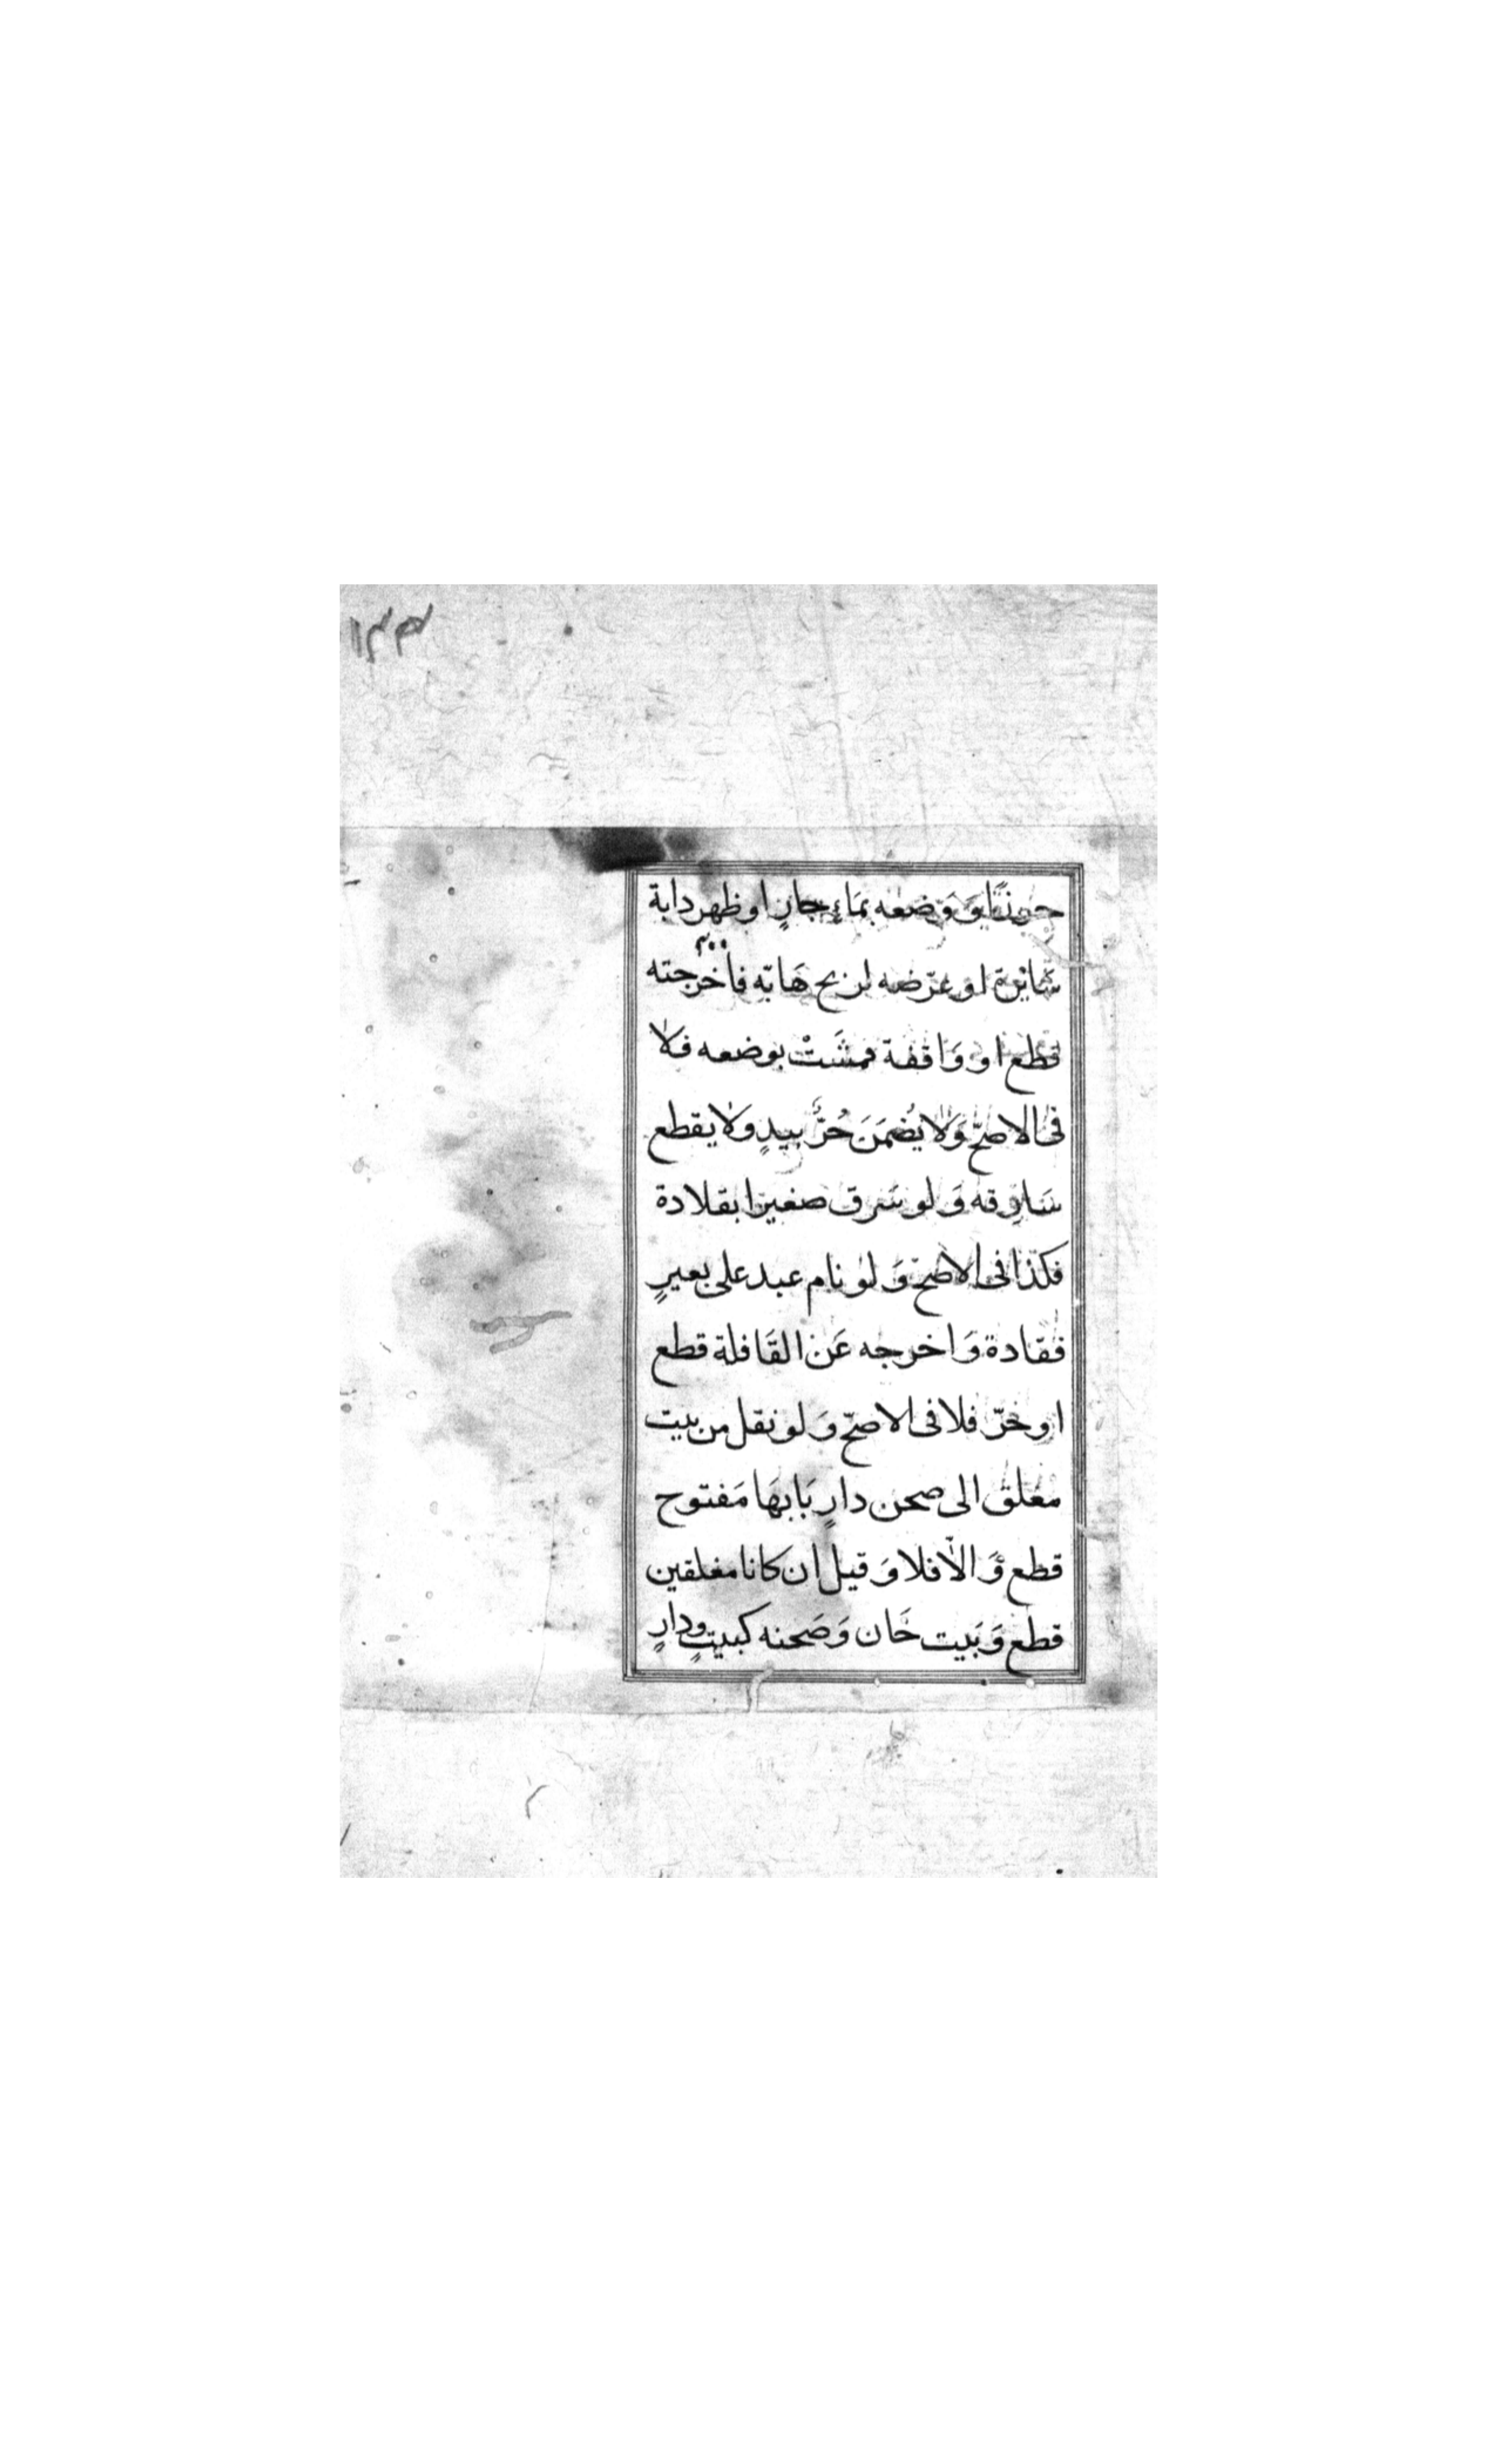 ١٣٣
حرز او وضعه بمَاءٍ جارٍ او ظهر دابة
سَائرة او عرّضه لريح هَابّه فأخرجته
قطع او وَاقفة فمشَتْ بوضعه فلا
فى الاصحّ وَلا يُضمَنَ حُرٌّ بيدٍ ولا يقطع
سَارقه وَلو سَرق صغيرا بقلادة
فكذا فى الاصحّ وَلو نام عبد على بعيرٍ
فقادة وَاخرجه عَن القَافلة قطع
او حرّ فلا فى الاصحّ وَلو نقل من بيت
مغلق الى صحن دارٍ بَابهَا مَفتوح
قطع وَالّا فلا وَقيل ان كانا مغلقين
قطع وَبَيت خَان وَصَحنه كبيتٍ ودارٍ